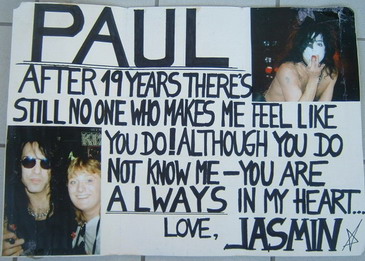 PAUL
AFTER 19 YEARS THERE'S
STILL NO ONE WHO MAKES ME FEEL LIKE
YOU DO! ALTHOUGH YOU DO
NOT KNOW ME - YOU ARE
ALWAYS IN MY HEART...
LOVE, JASMIN